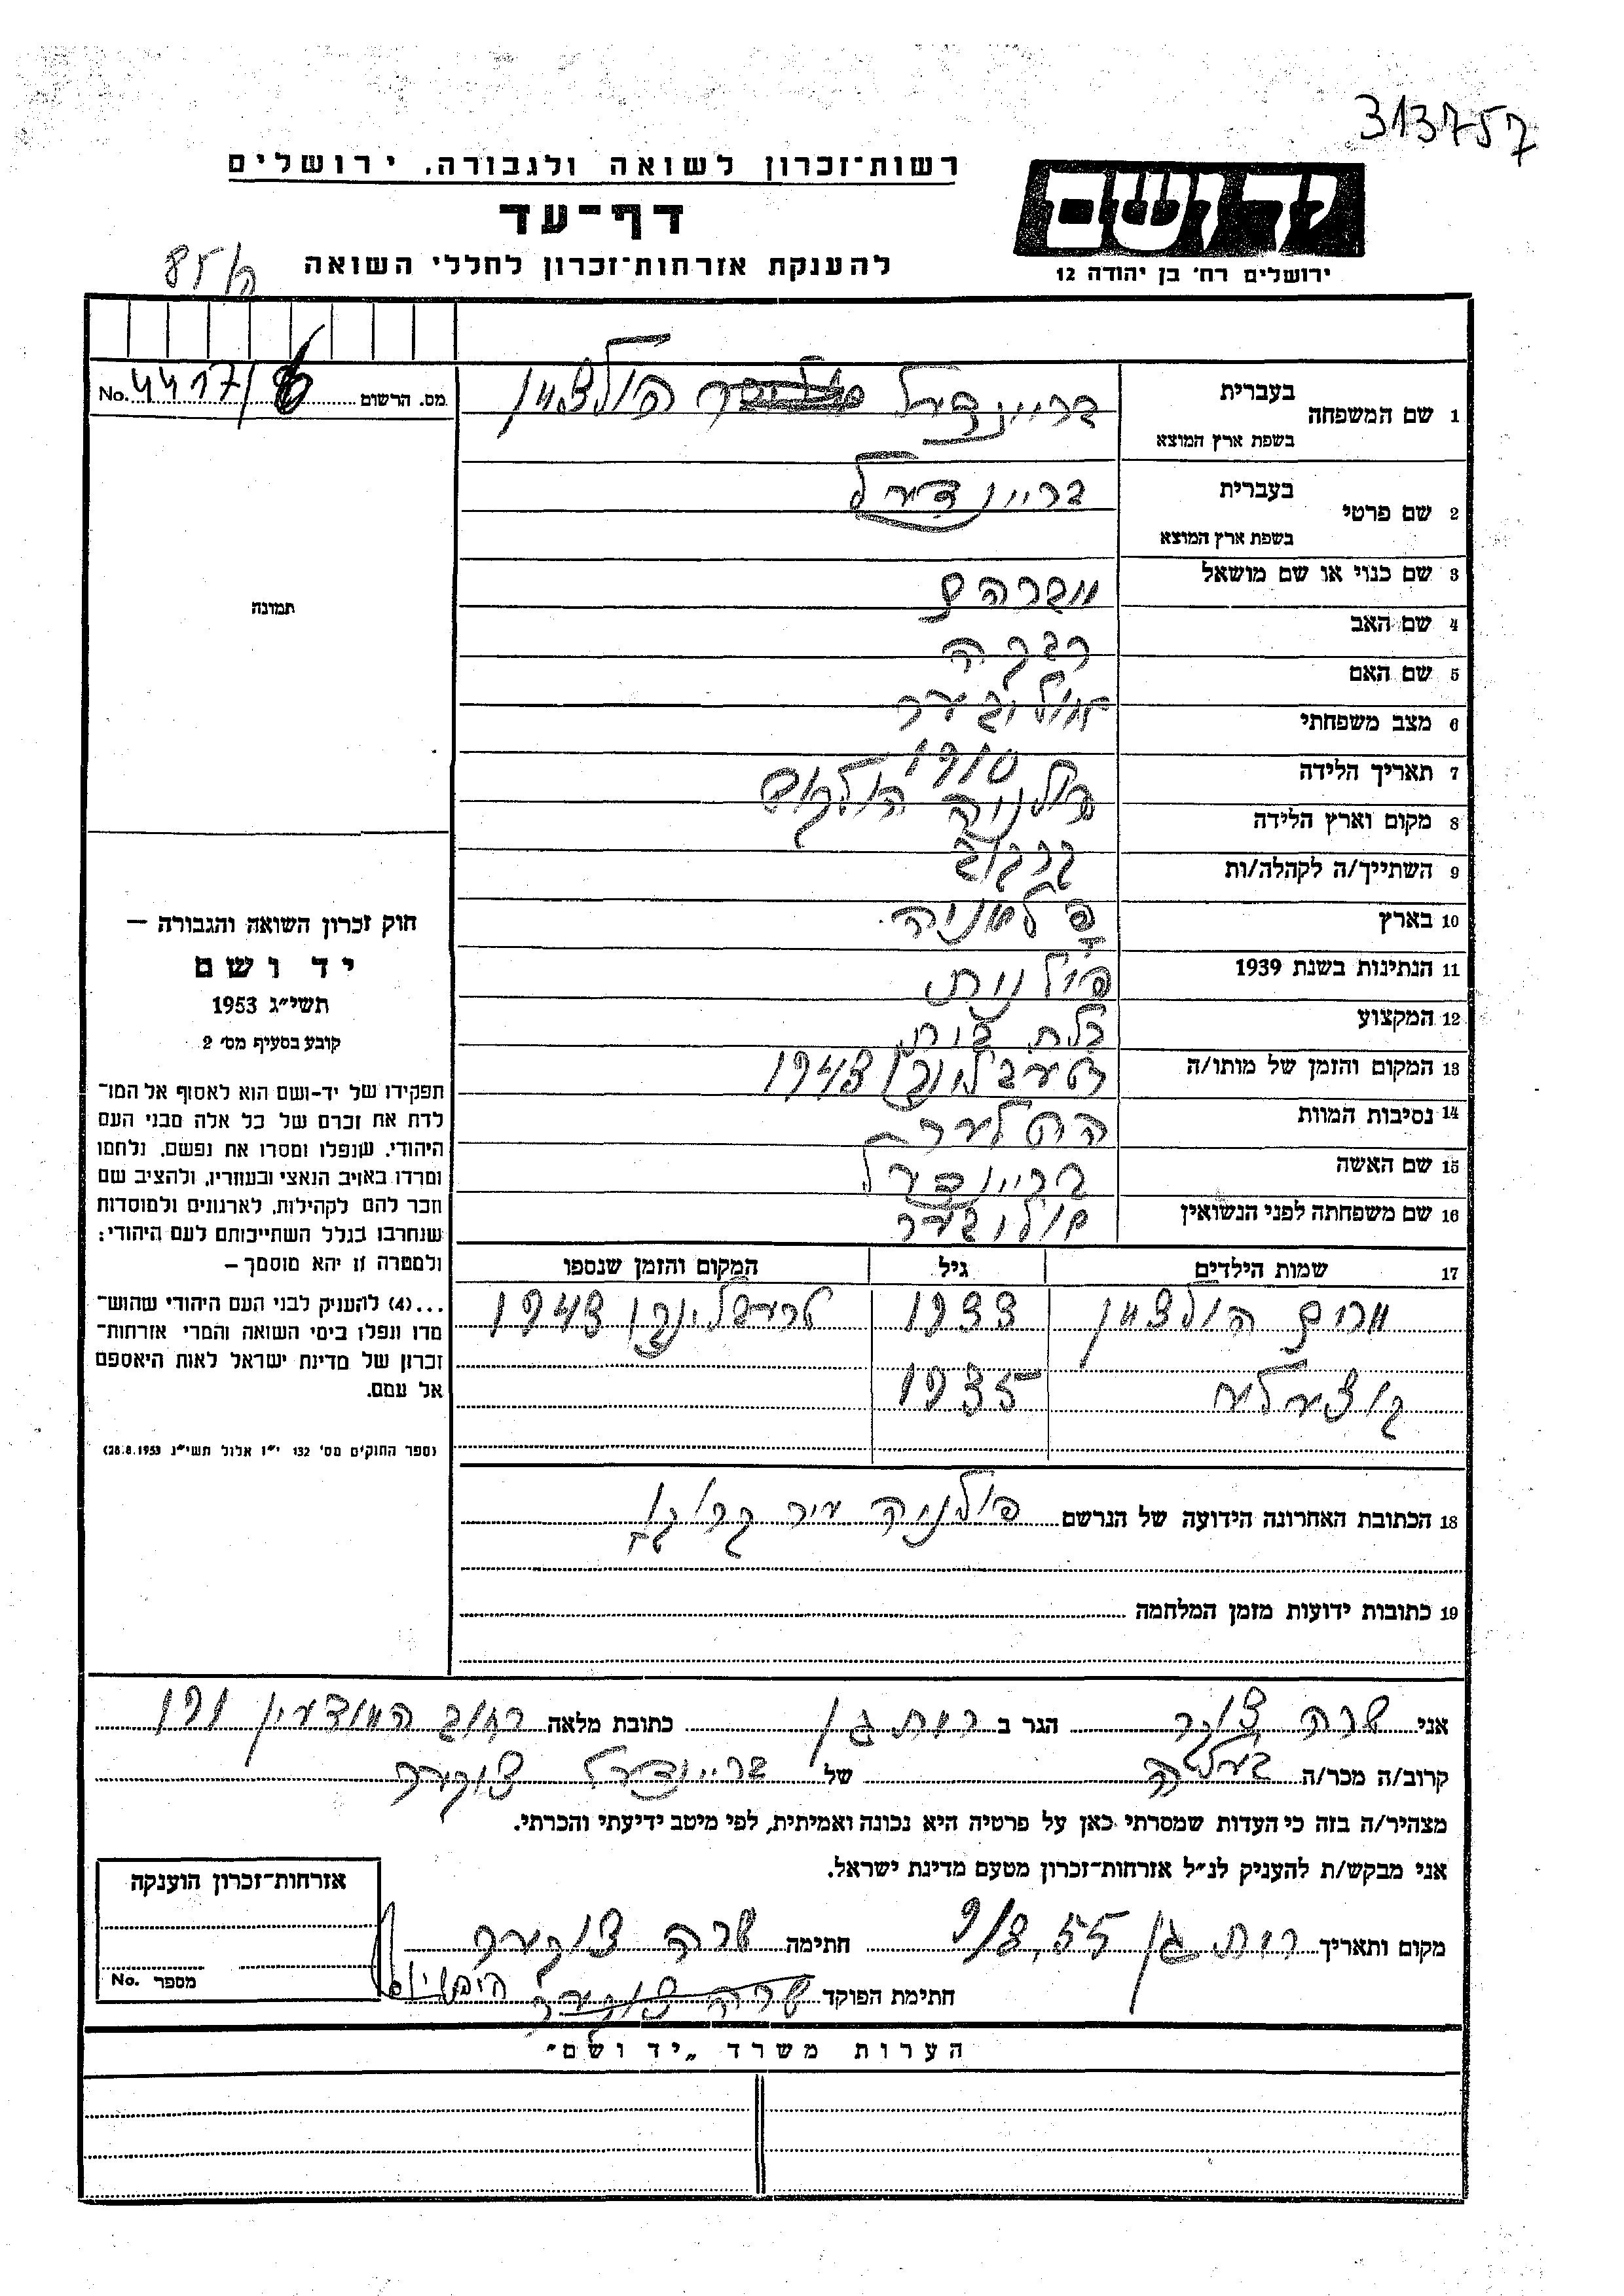 313757
רשות־זכרון לשואה ולגבורה, ירושלים
ידושם
דף־עד
ירושלים רח׳ בן יהודה 12
להענקת אזרחות־זכרון לחללי השואה
85/
בעברית
1 שם המשפחה
בשפת ארץ המוצא
בריינדעל הולצמן
מס. הרשום 4417/6 No.
בעברית
2 שם פרטי
בשפת ארץ המוצא
בריינדעל
3 שם כנוי או שם מושאל
אברהם
4 שם האב
רבקה
5 שם האם
6 מצב משפחתי
7 תאריך הלידה 1910
8 מקום וארץ הלידה פולניה
9 השתייך/ה לקהלה/ות
10 בארץ
11 הנתינות בשנת 1939 פולנית
12 המקצוע בלת בית
13 המקום והזמן של מותו/ה 1943
14 נסיבות המוות היטלער
15 שם האשה בריינדעל
16 שם משפחתה לפני הנשואין
17 שמות הילדים גיל המקום והזמן שנספו
מרים הולצמן 1933 טרעבלינקן 1943
1935
18 הכתובת האחרונה הידועה של הנרשם פולניה עיר
19 כתובות ידועות מזמן המלחמה
תמונה
חוק זכרון השואה והגבורה —
יד ושם
תשי״ג 1953
קובע בסעיף מס׳ 2
תפקידו של יד-ושם הוא לאסוף אל המו־
לדת את זכרם של כל אלה מבני העם
היהודי, שנפלו ומסרו את נפשם, נלחמו
ומרדו באויב הנאצי ובעוזריו, ולהציב שם
וזכר להם לקהילות, לארגונים ולמוסדות
שנחרבו בגלל השתייכותם לעם היהודי;
ולמטרה זו יהא מוסמך —
...(4) להעניק לבני העם היהודי שהוש־
מדו ונפלו בימי השואה והמרי אזרחות־
זכרון של מדינת ישראל לאות היאספם
אל עמם.
(ספר החוקים מס׳ 132 י״ז אלול תשי״ג 28.8.1953)
אני שרה צוקער הגר ב רמת גן כתובת מלאה רחוב המודעין 191
קרוב/ה מכר/ה של בריינדעל צוקער
מצהיר/ה בזה כי העדות שמסרתי כאן על פרטיה היא נכונה ואמיתית, לפי מיטב ידיעתי והכרתי.
אני מבקש/ת להעניק לנ״ל אזרחות־זכרון מטעם מדינת ישראל.
מקום ותאריך רמת גן 9/8,55 חתימה שרה צוקער
חתימת הפוקד שרה צוקער
אזרחות־זכרון הוענקה
מספר No.
הערות משרד „יד ושם״